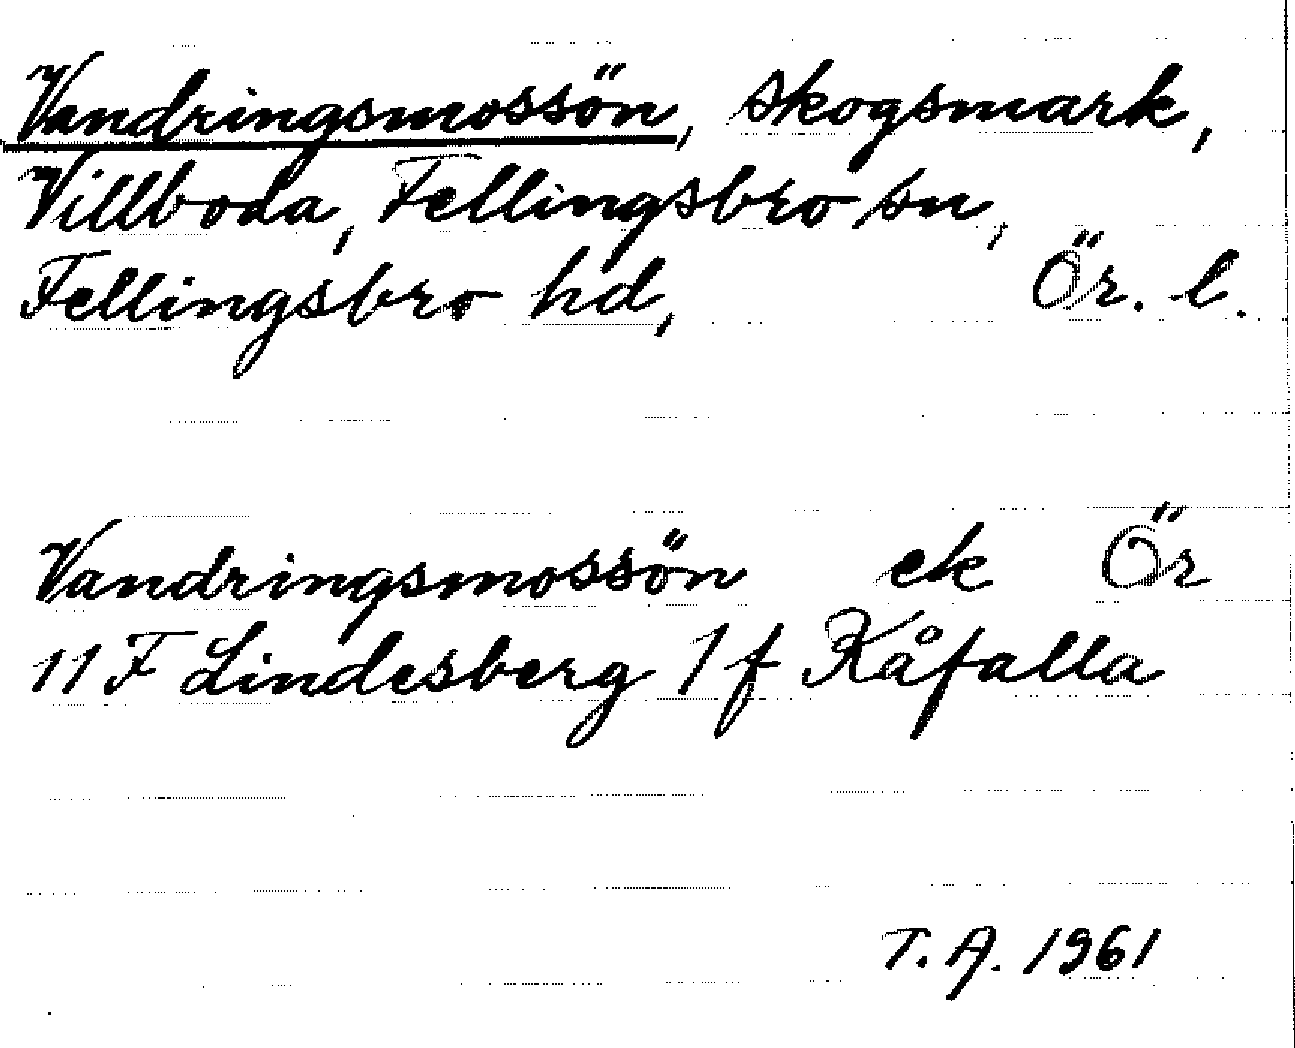 Vandringsmossön, skogsmark,
Villboda, Fellingsbro sn,
Fellingsbro hd, Ör. l.
Vandringsmossön ek Ör
11 F Lindesberg 1 f Kåfalla
T. A. 1961